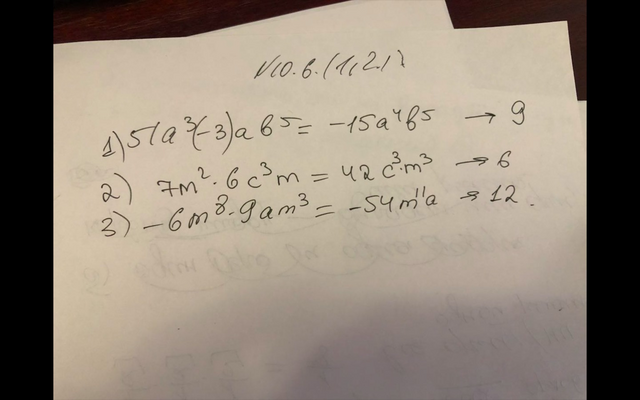 N10.6.(1,2.)
1) 5/a³(-3)ab⁵ = -15a⁴b⁵ → 9
2) 7m²·6c³m = 42c³·m³ → 6
3) -6m⁸·9am³ = -54m¹¹a → 12.